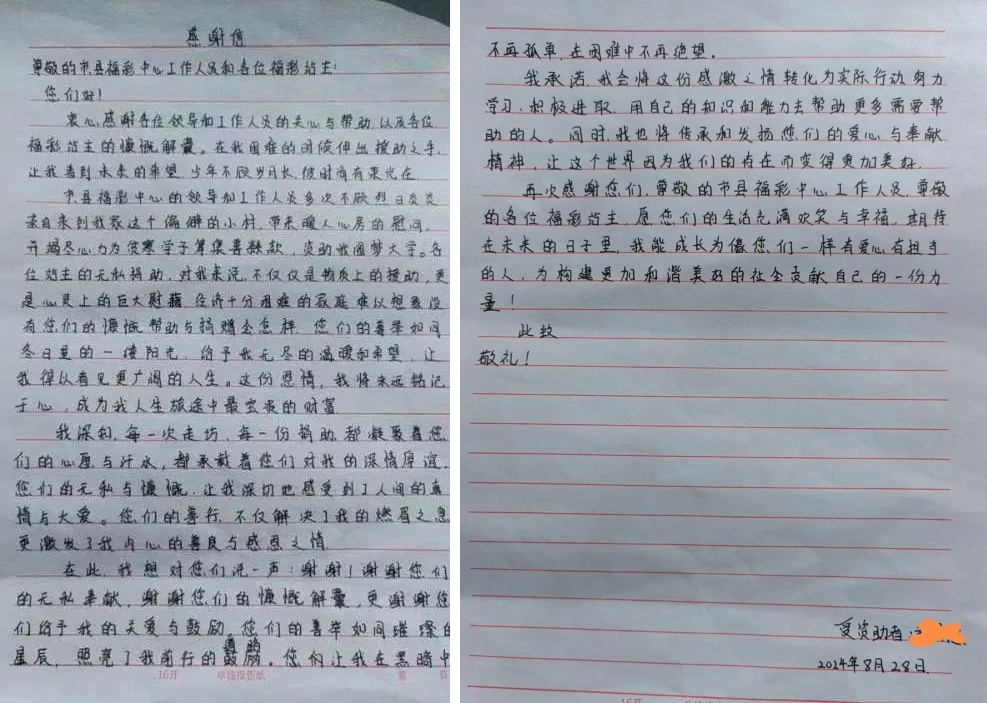 感谢信
尊敬的市县福彩中心工作人员和各位福彩站主:
您们好!
衷心感谢各位领导和工作人员的关心与帮助,以及各位
福彩站主的慷慨解囊。在我困难的时候伸出援助之手,
让我看到未来的希望。少年不欣岁月长,彼时尚有荣光在
市县福彩中心的领导和工作人员多次不顾烈日炎炎
亲自来到我家这个偏僻的小村,带来暖人心房的慰问,
并竭尽心力为贫寒学子筹集善款,资助我圆梦大学。各
位站主的无私捐助,对我来说,不仅仅是物质上的援助,更
是心灵上的巨大慰藉,经济十分困难的家庭难以想象没
有您们的慷慨帮助与捐赠会怎样,您们的善举如同
冬日里的一缕阳光,给予我无尽的温暖和希望,让
我得以看见更广阔的人生。这份恩情,我将永远铭记
于心,成为我人生旅途中最宝贵的财富
我深知,每一次走访、每一份捐助,都凝聚着您
们的心愿与汗水,都承载着您们对我的深情厚谊,
您们的无私与慷慨,让我深切地感受到了人间的真
情与大爱。您们的善行,不仅解决了我的燃眉之急
更激发了我内心的善良与感恩之情
在此,我想对您们说一声:谢谢!谢谢您们
的无私奉献,谢谢您们的慷慨解囊,更谢谢您
们给予我的关爱与鼓励,您们的善举如同璀璨的
星辰,照亮了我前行的道路。您们让我在黑暗中
16开 单线报告纸 第 页
不再孤单,在困难中不再绝望。
我承诺,我会将这份感激之情转化为实际行动,努力
学习,积极进取,用自己的知识和能力去帮助更多需要帮
助的人。同时,我也将传承和发扬您们的爱心与奉献
精神,让这个世界因为我们的存在而变得更加美好.
再次感谢您们,尊敬的市县福彩中心工作人员,尊敬
的各位福彩站主,愿您们的生活充满欢笑与幸福,期待
在未来的日子里,我能成长为像您们一样有爱心有担当
的人,为构建更加和谐美好的社会贡献自己的一份力
量!
此致
敬礼!
受资助者:
2024年8月28日.